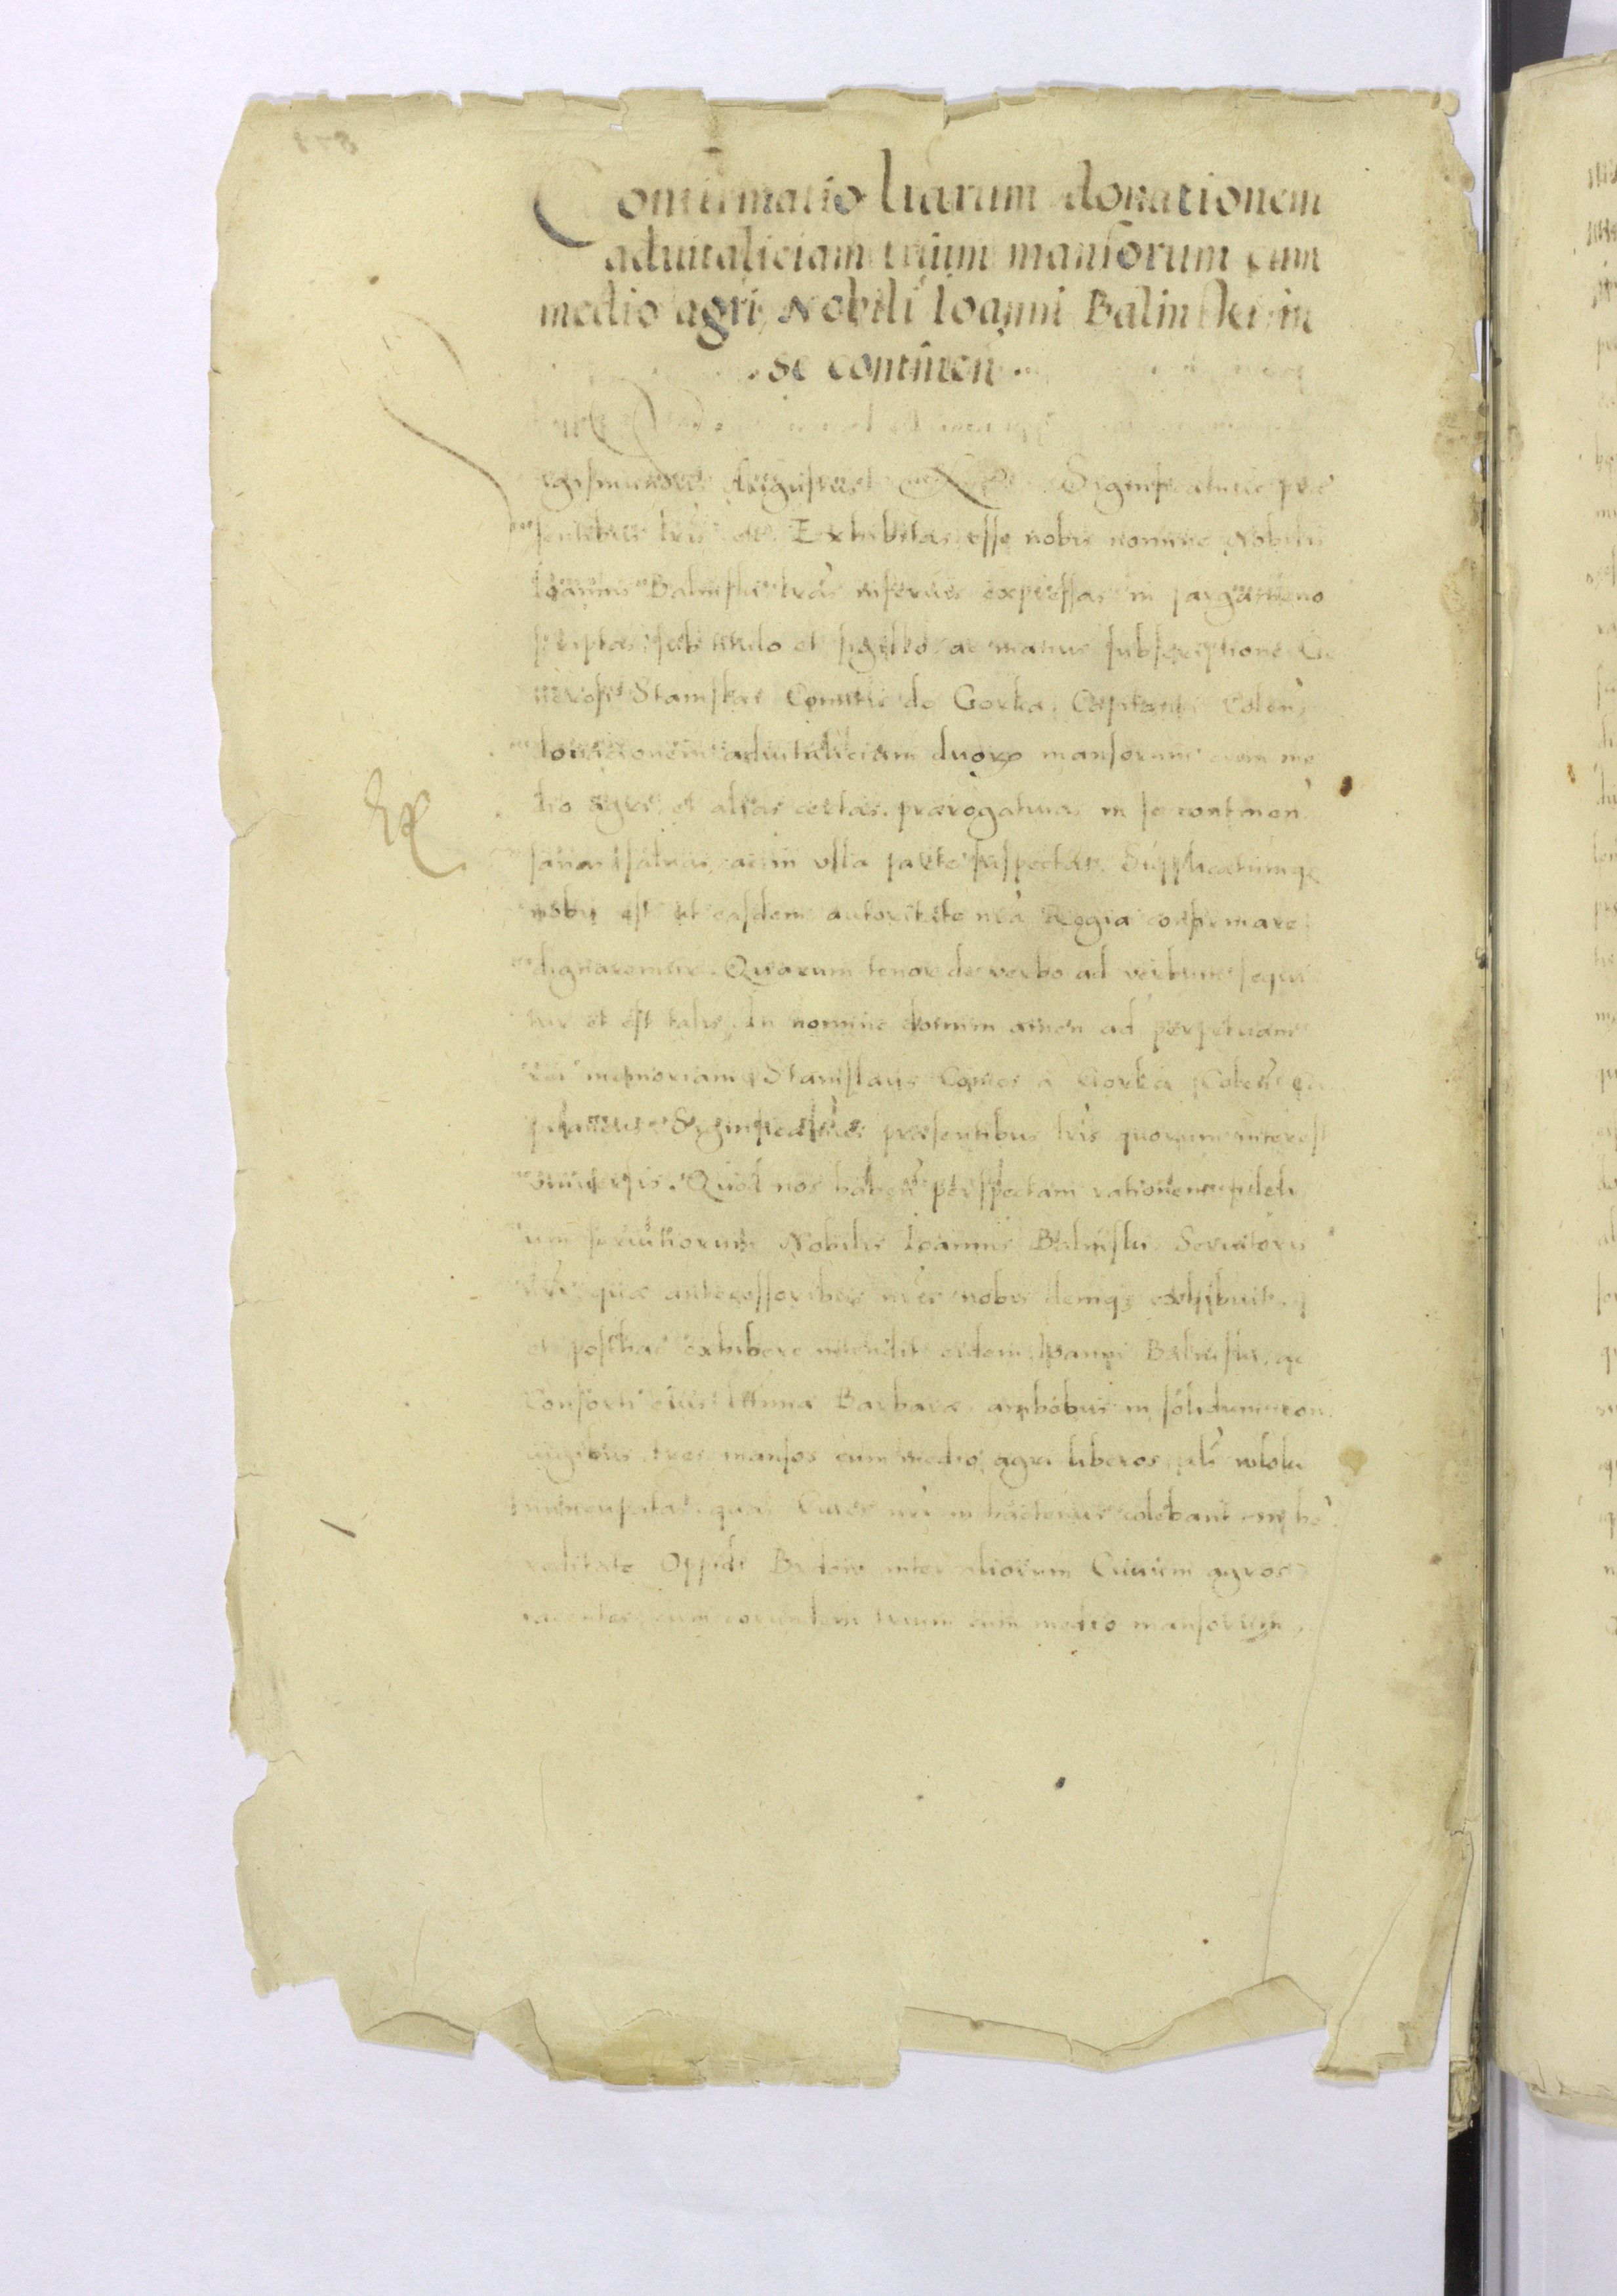 Confirmatio lrarum donationem
aduitaliciam trium mansorum cum
medio agri Nobili Ioanni Balinski in
se continen
Augustus Significamus præ
sentibus lris etc. Exhibitas esse nobis nomine Nobilis
Ioannis Balinski lras inferius expressas in pargameno
scriptas, sub titulo et sigillo ac manus subscriptione Ge
nerosi Stanislai Comitis de Gorka, Capitanei Colen,
donationem aduitaliciam duorum mansorum cum me
dio agri et alias certas prærogatiuas in se continen
sanas saluas ac in vlla parte suspectas. Supplicatumq
nobis est ut easdem autoritate nra Regia confirmare
dignaremur. Quarum tenor de verbo ad verbum sequi
tur et est talis. In nomine domini amen ad perpetuam
rei memoriam Stanislaus Comes a Gorka Colen Ca
pitaneus Significamus præsentibus lris quorum interest
vniuersis. Quod nos haben perspectam rationem fideli
um seruitiorum Nobilis Ioannis Balinski Seruitoris
nri, quæ antecessoribus nris nobis deniq exhibuit
et posthac exhibere intendit eidem Ioanni Balinski, ac
Consorti eius Barbaræ ambobus in solidum con
iugibus tres mansos cum medio agri liberos
quas Ciues nri hactenus colebant in he
reditate Oppidi inter aliorum Ciuium agros
iacentes, cum eorundem trium cum medio mansorum,